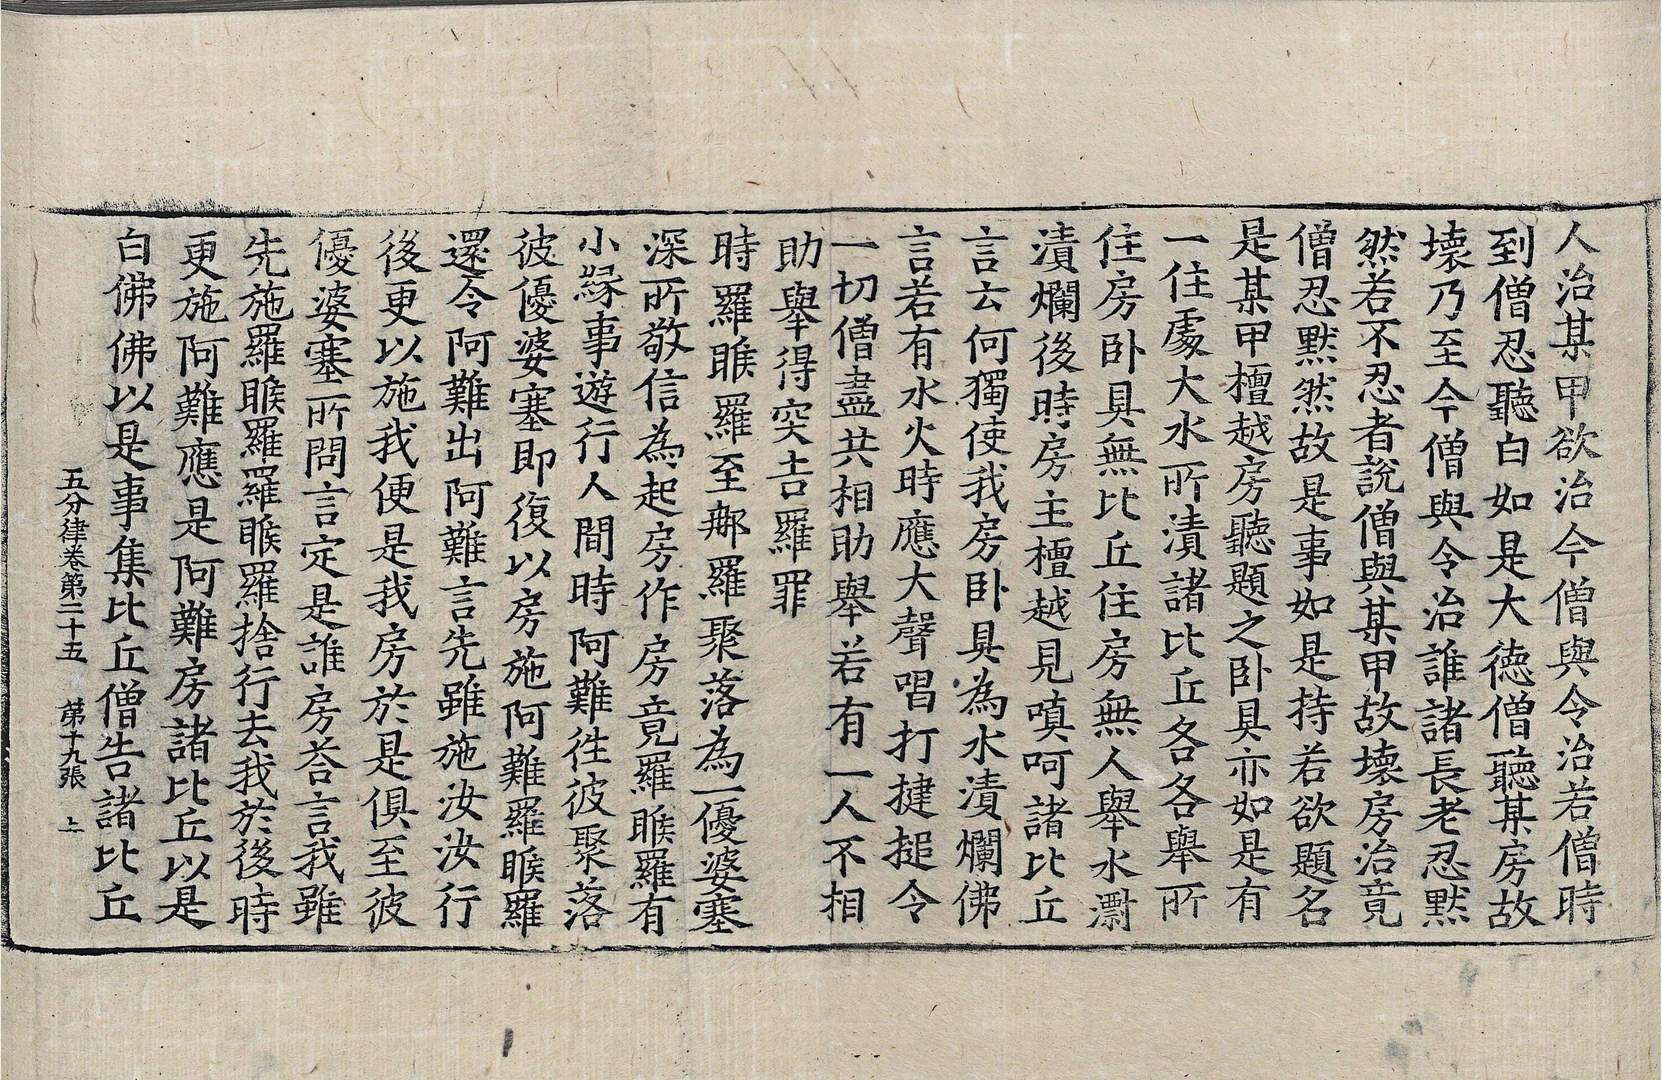 人治某甲欲治今僧與令治若僧時
到僧忍聽白如是大德僧聽某房故
壞乃至今僧與令治誰諸長老忍默
然若不忍者說僧與某甲故壞房治竟
僧忍默然故是事如是持若欲題名
是某甲檀越房聽題之卧具亦如是有
一住處大水所漬諸比丘各各舉所
住房卧具無比丘住房無人舉水㵽
漬爛後時房主檀越見嗔呵諸比丘
言云何獨使我房卧具為水漬爛佛
言若有水火時應大聲唱打揵搥令
一切僧盡共相助舉若有一人不相
助舉得突吉羅罪
時羅睺羅至那羅聚落為一優婆塞
深所敬信為起房作房竟羅睺羅有
小緣事遊行人間時阿難往彼聚落
彼優婆塞即復以房施阿難羅睺羅
還令阿難出阿難言先雖施汝汝行
後更以施我便是我房於是俱至彼
優婆塞所問言定是誰房荅言我雖
先施羅睺羅羅睺羅捨行去我於後時
更施阿難應是阿難房諸比丘以是
白佛佛以是事集比丘僧告諸比丘
五分律卷第二十五 第十九張 上